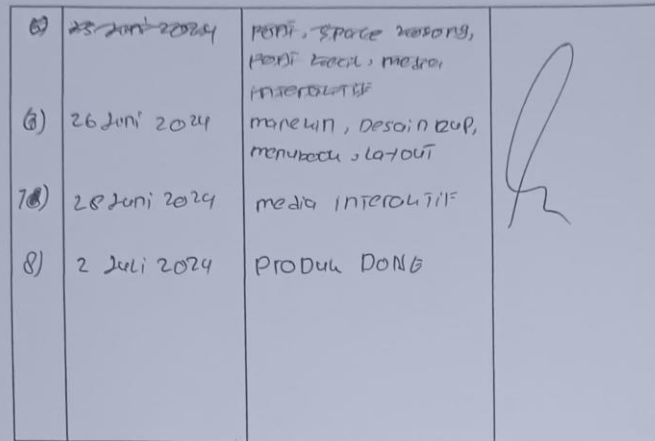 6) 25 Juni 2024 peti, space kosong,
peti kecil, media
interaktif
6) 26 Juni 2024 manekin, Desain RUP,
menubook, Layout
7) 28 Juni 2024 media interaktif
8) 2 Juli 2024 Produk DONE